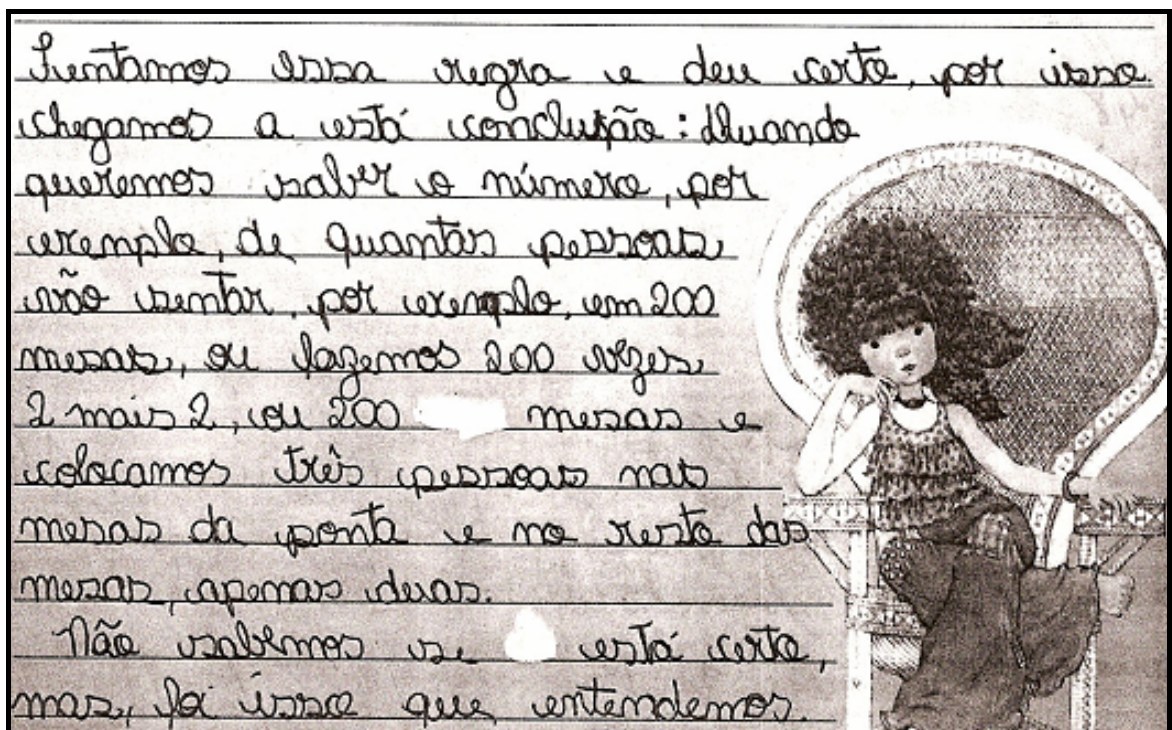 Tentamos essa regra e deu certo, por isso
chegamos a está conclusão: Quando
queremos saber o número, por
exemplo, de quantas pessoas
vão sentar, por exemplo, em 200
mesas, ou fazemos 200 vezes
2 mais 2, ou 200 mesas e
colocamos três pessoas nas
mesas da ponta e no resto das
mesas, apenas duas.
Não sabemos se está certo,
mas, foi isso que entendemos.